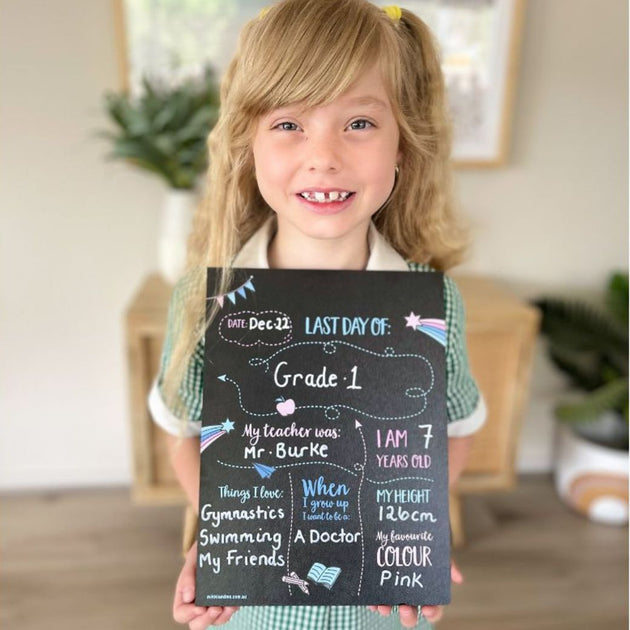 DATE: Dec-22 LAST DAY OF:
Grade 1
My teacher was:
Mr. Burke
I AM 7
YEARS OLD
Things I love:
Gymnastics
Swimming
My Friends
When
I grow up
I want to be a:
A Doctor
MY HEIGHT
126cm
My favourite
COLOUR
Pink